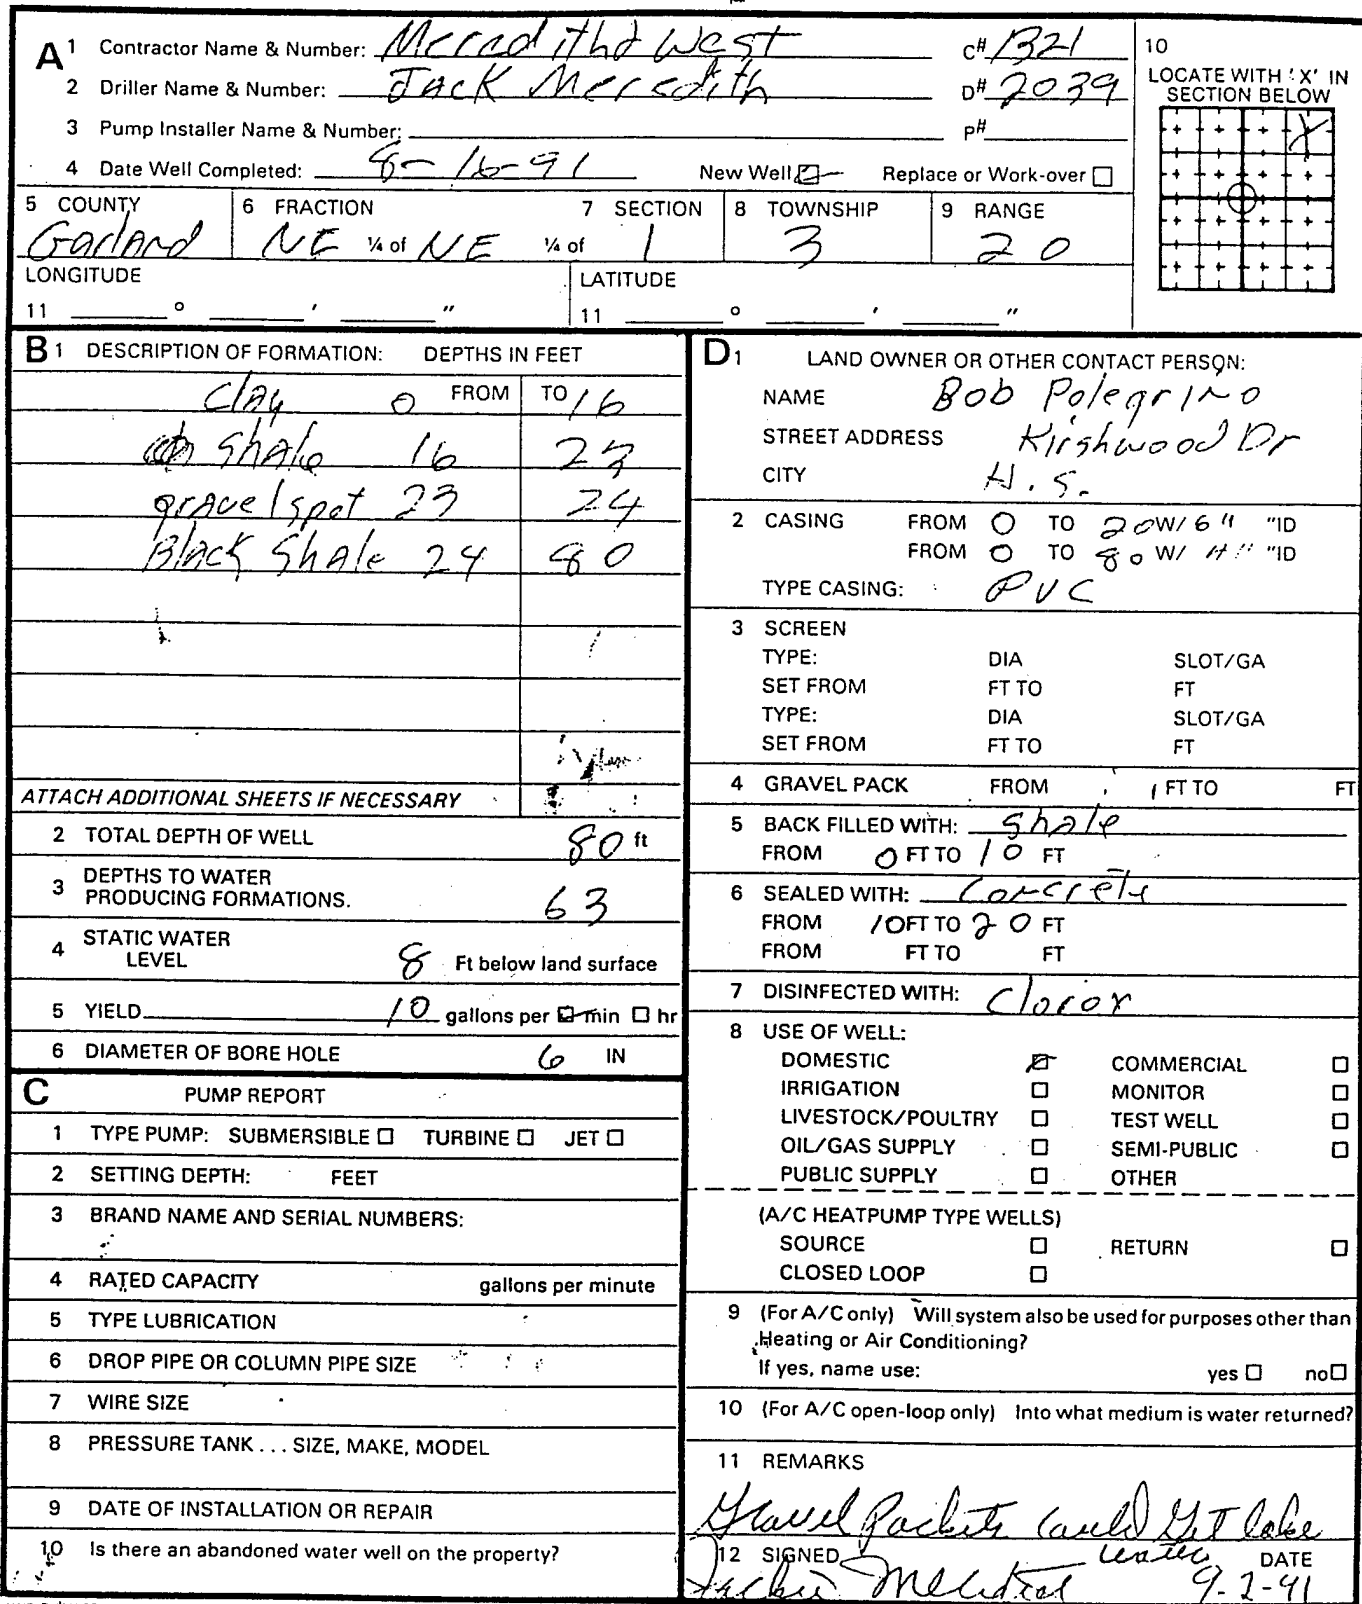 A 1 Contractor Name & Number: Meredith & West C# 1321
2 Driller Name & Number: Jack Meredith D# 2039
3 Pump Installer Name & Number: P#
4 Date Well Completed: 8-16-91 New Well Replace or Work-over
10
LOCATE WITH 'X' IN
SECTION BELOW
X
5 COUNTY 6 FRACTION 7 SECTION 8 TOWNSHIP 9 RANGE
Garland NE ¼ of NE ¼ of 1 3 20
LONGITUDE LATITUDE
11 ° ' " 11 ° ' "
B 1 DESCRIPTION OF FORMATION: DEPTHS IN FEET
FROM TO
Clay 0 16
Shale 16 23
gravel spot 23 24
Black Shale 24 80
ATTACH ADDITIONAL SHEETS IF NECESSARY
2 TOTAL DEPTH OF WELL 80 ft
3 DEPTHS TO WATER
PRODUCING FORMATIONS. 63
4 STATIC WATER
LEVEL 8 Ft below land surface
5 YIELD 10 gallons per min hr
6 DIAMETER OF BORE HOLE 6 IN
C PUMP REPORT
1 TYPE PUMP: SUBMERSIBLE TURBINE JET
2 SETTING DEPTH: FEET
3 BRAND NAME AND SERIAL NUMBERS:
4 RATED CAPACITY gallons per minute
5 TYPE LUBRICATION
6 DROP PIPE OR COLUMN PIPE SIZE
7 WIRE SIZE
8 PRESSURE TANK . . . SIZE, MAKE, MODEL
9 DATE OF INSTALLATION OR REPAIR
10 Is there an abandoned water well on the property?
D 1 LAND OWNER OR OTHER CONTACT PERSON:
NAME Bob Polegrino
STREET ADDRESS Kirshwood Dr
CITY H.S.
2 CASING FROM 0 TO 20 W/ 6" "ID
FROM 0 TO 80 W/ 4" "ID
TYPE CASING: PVC
3 SCREEN
TYPE: DIA SLOT/GA
SET FROM FT TO FT
TYPE: DIA SLOT/GA
SET FROM FT TO FT
4 GRAVEL PACK FROM FT TO FT
5 BACK FILLED WITH: Shale
FROM 0 FT TO 10 FT
6 SEALED WITH: Concrete
FROM 10 FT TO 20 FT
FROM FT TO FT
7 DISINFECTED WITH: Clorox
8 USE OF WELL:
DOMESTIC COMMERCIAL
IRRIGATION MONITOR
LIVESTOCK/POULTRY TEST WELL
OIL/GAS SUPPLY SEMI-PUBLIC
PUBLIC SUPPLY OTHER
(A/C HEATPUMP TYPE WELLS)
SOURCE RETURN
CLOSED LOOP
9 (For A/C only) Will system also be used for purposes other than
Heating or Air Conditioning?
If yes, name use: yes no
10 (For A/C open-loop only) Into what medium is water returned?
11 REMARKS
Gravel Pockets Could Get lake
water
12 SIGNED DATE
Jackie Meredith 9-2-91